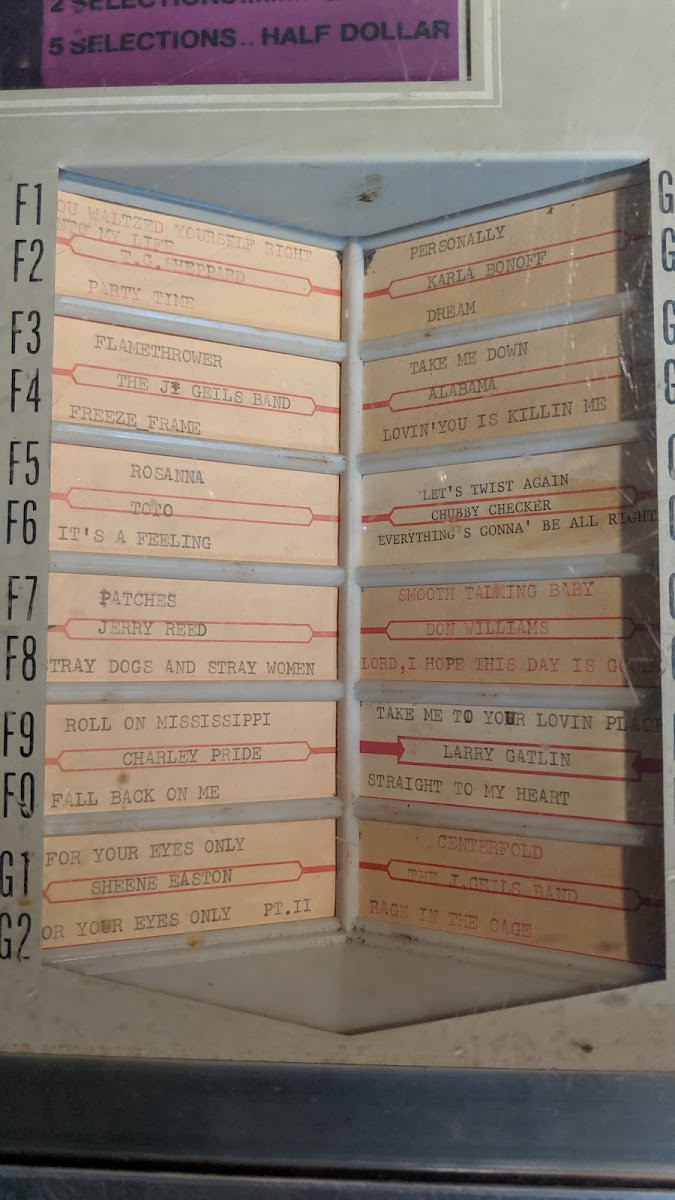 2 SELECTIONS
5 SELECTIONS.. HALF DOLLAR
F1
OU WALTZED YOURSELF RIGHT
NTO MY LIFE
T.G.SHEPPARD
F2
PARTY TIME
F3
FLAMETHROWER
THE J. GEILS BAND
F4
FREEZE_FRAME
F5
ROSANNA
TOTO
F6
IT'S A FEELING
F7
PATCHES
JERRY REED
F8
TRAY DOGS AND STRAY WOMEN
F9
ROLL ON MISSISSIPPI
CHARLEY PRIDE
F0
FALL BACK ON ME
G1
FOR YOUR EYES ONLY
SHEENE EASTON
G2
OR YOUR EYES ONLY PT.II
G
PERSONALLY
KARLA BONOFF
G
DREAM
G
TAKE ME DOWN
ALABAMA
G
LOVIN'YOU IS KILLIN ME
LET'S TWIST AGAIN
CHUBBY CHECKER
EVERYTHING'S GONNA' BE ALL RIGHT
SMOOTH TALKING BABY
DON WILLIAMS
LORD,I HOPE THIS DAY IS GOOD
TAKE ME TO YOUR LOVIN PLACE
LARRY GATLIN
STRAIGHT TO MY HEART
CENTERFOLD
THE J.GEILS BAND
RAGE IN THE CAGE